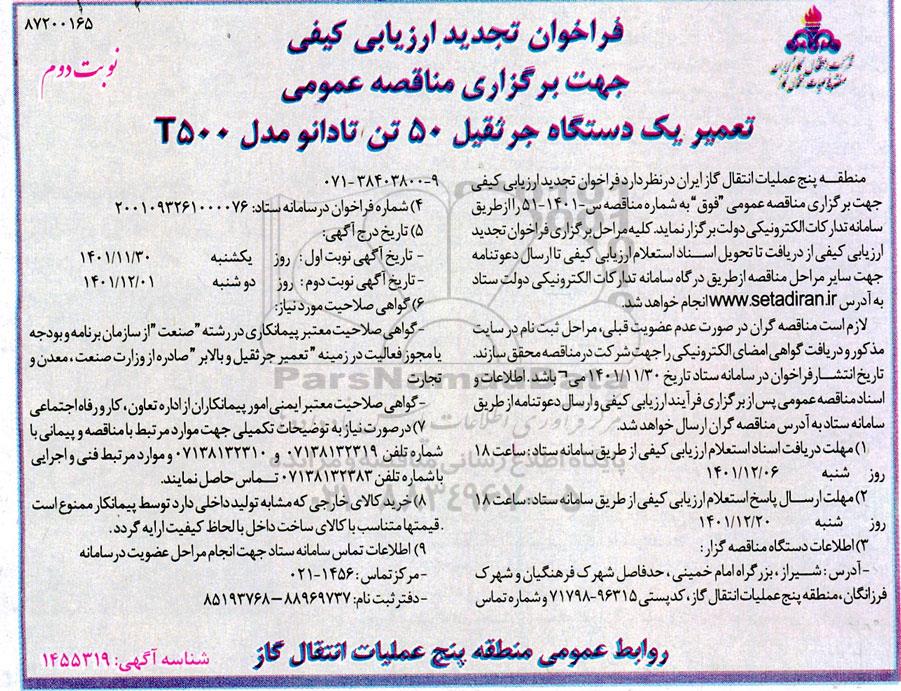 ۸۷۲۰۰۱۶۵
نوبت دوم
فراخوان تجدید ارزیابی کیفی
جهت برگزاری مناقصه عمومی
تعمیر یک دستگاه جرثقیل ۵۰ تن تادانو مدل T۵۰۰
منطقه پنج عملیات انتقال گاز ایران در نظر دارد فراخوان تجدید ارزیابی کیفی
جهت برگزاری مناقصه عمومی "فوق" به شماره مناقصه س-۱۴۰۱-۵۱ را از طریق
سامانه تدارکات الکترونیکی دولت برگزار نماید. کلیه مراحل برگزاری فراخوان تجدید
ارزیابی کیفی از دریافت تا تحویل اسناد استعلام ارزیابی کیفی تا ارسال دعوتنامه
جهت سایر مراحل مناقصه از طریق درگاه سامانه تدارکات الکترونیکی دولت ستاد
به آدرس www.setadiran.ir انجام خواهد شد.
لازم است مناقصه گران در صورت عدم عضویت قبلی، مراحل ثبت نام در سایت
مذکور و دریافت گواهی امضای الکترونیکی را جهت شرکت در مناقصه محقق سازند.
تاریخ انتشار فراخوان در سامانه ستاد تاریخ ۱۴۰۱/۱۱/۳۰ می باشد. اطلاعات و
اسناد مناقصه عمومی پس از برگزاری فرآیند ارزیابی کیفی و ارسال دعوتنامه از طریق
سامانه ستاد به آدرس مناقصه گران ارسال خواهد شد.
۱) مهلت دریافت اسناد استعلام ارزیابی کیفی از طریق سامانه ستاد: ساعت ۱۸
روز شنبه ۱۴۰۱/۱۲/۰۶
۲) مهلت ارسال پاسخ استعلام ارزیابی کیفی از طریق سامانه ستاد: ساعت ۱۸
روز شنبه ۱۴۰۱/۱۲/۲۰
۳) اطلاعات دستگاه مناقصه گزار:
-آدرس: شیراز، بزرگراه امام خمینی، حدفاصل شهرک فرهنگیان و شهرک
فرزانگان، منطقه پنج عملیات انتقال گاز، کدپستی ۹۶۳۱۵-۷۱۷۹۸ و شماره تماس
۰۷۱-۳۸۴۰۳۸۰۰-۹
۴) شماره فراخوان در سامانه ستاد: ۲۰۰۱۰۹۳۲۶۱۰۰۰۰۷۶
۵) تاریخ درج آگهی:
- تاریخ آگهی نوبت اول: روز یکشنبه ۱۴۰۱/۱۱/۳۰
- تاریخ آگهی نوبت دوم: روز دوشنبه ۱۴۰۱/۱۲/۰۱
۶) گواهی صلاحیت مورد نیاز:
-گواهی صلاحیت معتبر پیمانکاری در رشته "صنعت" از سازمان برنامه و بودجه
یا مجوز فعالیت در زمینه "تعمیر جرثقیل و بالابر" صادره از وزارت صنعت، معدن و
تجارت
-گواهی صلاحیت معتبر ایمنی امور پیمانکاران از اداره تعاون، کار و رفاه اجتماعی
۷) در صورت نیاز به توضیحات تکمیلی جهت موارد مرتبط با مناقصه و پیمانی با
شماره تلفن ۰۷۱۳۸۱۳۲۳۱۹ و ۰۷۱۳۸۱۳۲۳۱۰ و موارد مرتبط فنی و اجرایی
با شماره تلفن ۰۷۱۳۸۱۳۲۳۸۳ تماس حاصل نمایند.
۸) خرید کالای خارجی که مشابه تولید داخلی دارد توسط پیمانکار ممنوع است
. قیمتها متناسب با کالای ساخت داخل با لحاظ کیفیت ارایه گردد.
۹) اطلاعات تماس سامانه ستاد جهت انجام مراحل عضویت در سامانه
-مرکز تماس: ۱۴۵۶-۰۲۱
-دفتر ثبت نام: ۸۸۹۶۹۷۳۷-۸۵۱۹۳۷۶۸
روابط عمومی منطقه پنج عملیات انتقال گاز
شناسه آگهی: ۱۴۵۵۳۱۹
ParsNamadData